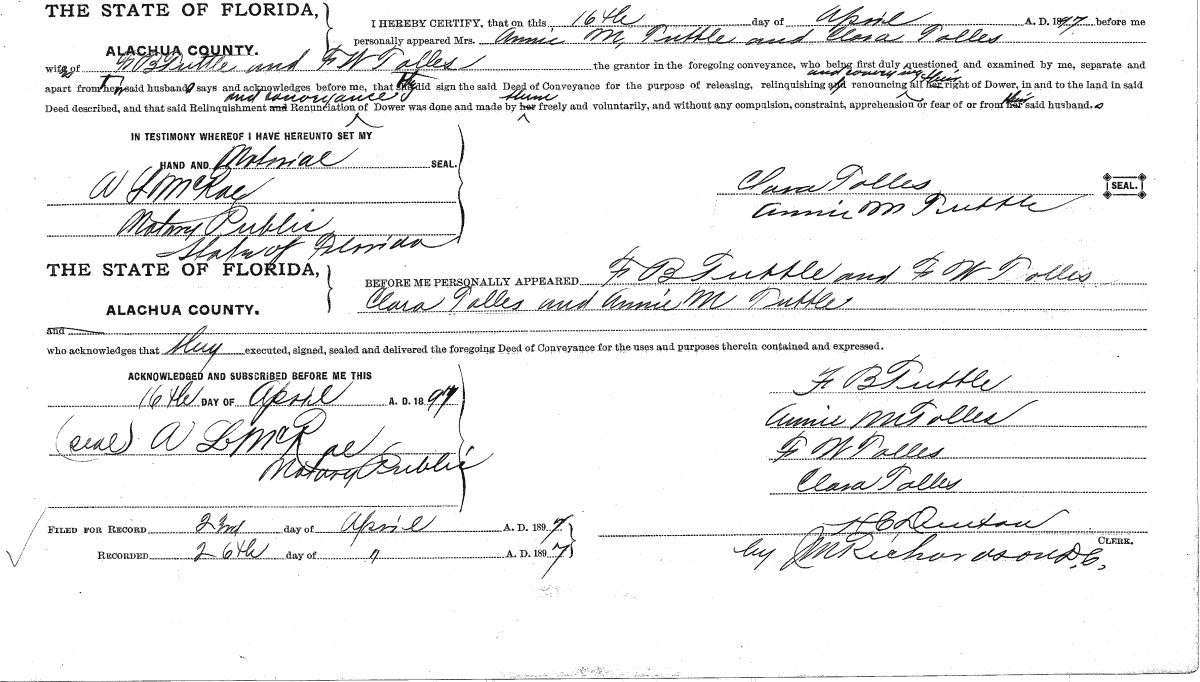 THE STATE OF FLORIDA,
ALACHUA COUNTY.
I HEREBY CERTIFY, that on this 16th day of April A. D. 1897 before me
personally appeared Mrs. Annie M, Tuttle and Clara Tolles
wife of F B Tuttle and F W Tolles the grantor in the foregoing conveyance, who being first duly questioned and examined by me, separate and
and conveying their
apart from her said husband says and acknowledges before me, that she did sign the said Deed of Conveyance for the purpose of releasing, relinquishing and renouncing all her right of Dower, in and to the land in said
and conveyance them their
Deed described, and that said Relinquishment and Renunciation of Dower was done and made by her freely and voluntarily, and without any compulsion, constraint, apprehension or fear of or from her said husband.s
IN TESTIMONY WHEREOF I HAVE HEREUNTO SET MY
HAND AND Notorial SEAL.
A L McRae
Notary Public
State of Florida
Clara Tolles SEAL.
Annie M Tuttle
THE STATE OF FLORIDA,
ALACHUA COUNTY.
BEFORE ME PERSONALLY APPEARED F B Tuttle and F W Tolles
Clara Tolles and Annie M Tuttle
and
who acknowledges that they executed, signed, sealed and delivered the foregoing Deed of Conveyance for the uses and purposes therein contained and expressed.
ACKNOWLEDGED AND SUBSCRIBED BEFORE ME THIS
16th DAY OF April A. D. 1897
(seal) A L McRae
Notary Public
F B Tuttle
Annie M Tolles
F W Tolles
Clara Tolles
FILED FOR RECORD 23rd day of April A. D. 1897
RECORDED 26th day of " A. D. 1897
H C Denton
CLERK.
by J M Richardson D.C.